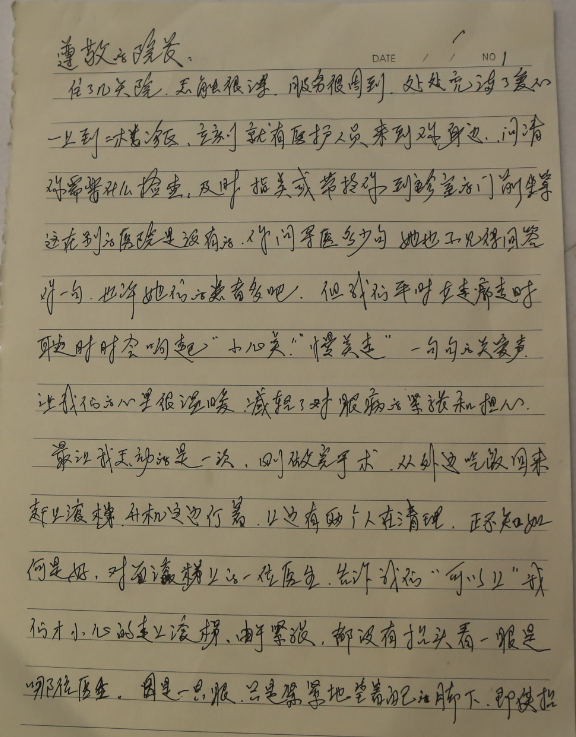 尊敬的院长：
DATE / / NO 1
住了几天院，态度很深，服务很周到，处处充满了爱心
一上到二楼诊区，立刻就有医护人员来到你身边，问清
你需要什么检查，及时指美或带投你到诊室的门前坐等
这在别的医院是没有的，你问导医多少句她也不见得回答
你一句，也许她们的患者多吧，但我们平时在走廊走时
耳边时时会响起"小心类"."慢美走"一句句的关爱声
让我们的心里很温暖，减轻了对眼病的紧张和担心.
最让我感动的是一次，刚做完手术，从外边吃饭回来
走上滚梯，升机这边停着，上边有两个人在清理，正不知如
何是好，对面滚梯上的一位医生，告诉我们"可以上"我
们才小心的走上滚梯，由于紧张，都没有抬头看一眼是
哪位医生，因是一只眼，只是紧紧地望着自己的脚下，即使抬